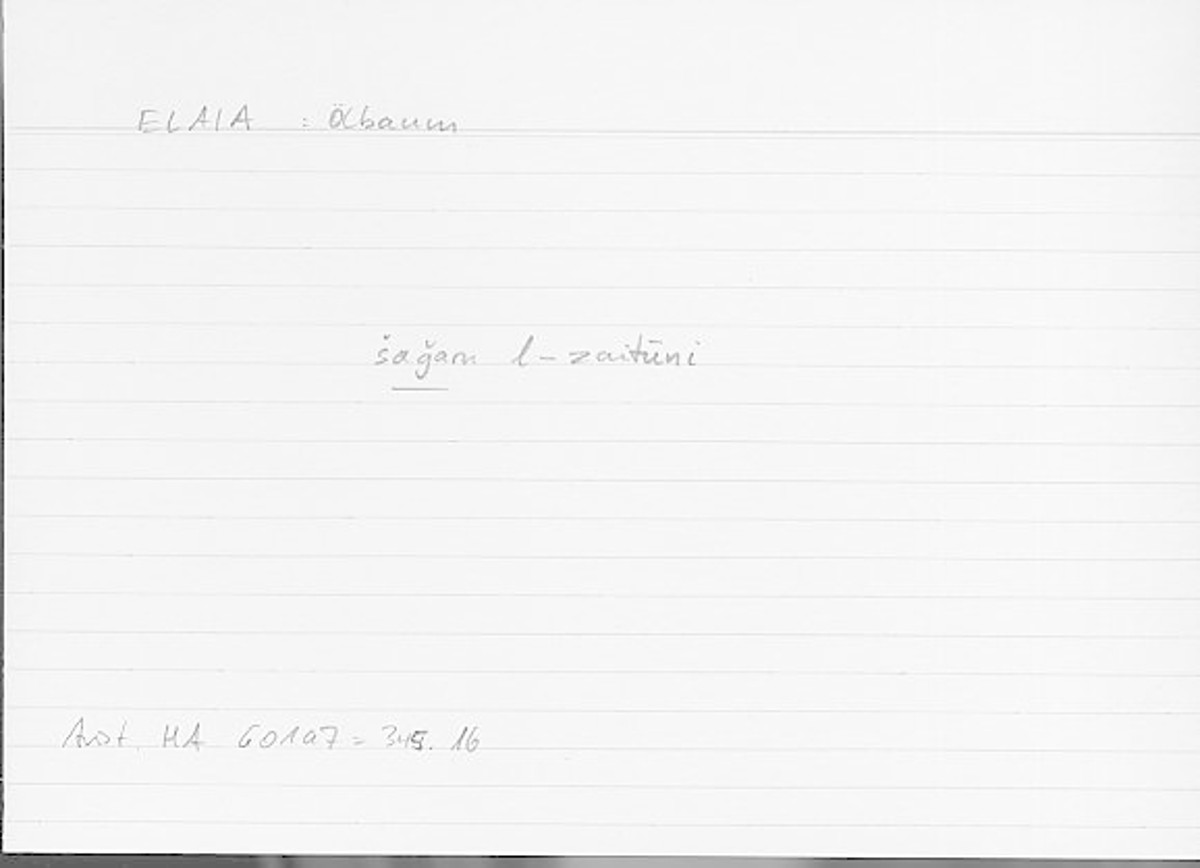 ELAIA : Ölbaum
šaǧari l-zaitūni
Arist. HA 601a7 = 345. 16